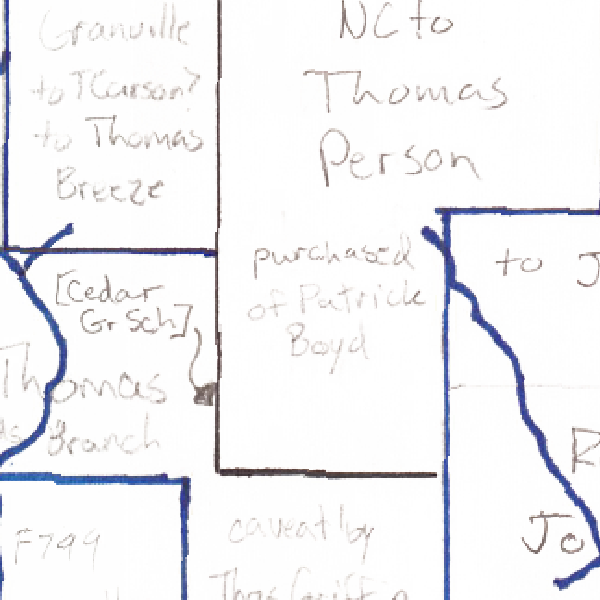 Granville
to TCarson?
to Thomas
Breeze
NC to
Thomas
Person
purchased
of Patrick
Boyd
to J
[Cedar
Gr Sch]
Thomas
Branch
F749
caveat by
Thos Griffin
R
Jo